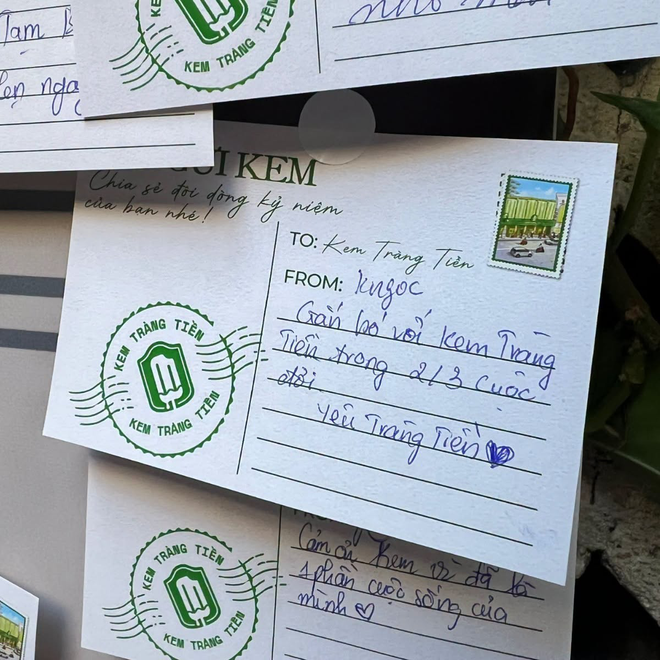 KEM TRÀNG TIỀN
Tạm
KEM
ƯI KEM
Chia sẻ đôi dòng kỷ niệm
của bạn nhé!
TO: Kem Tràng Tiền
FROM: kngoc
Gắn bó với Kem Tràng
Tiền trong 2/3 cuộc
đời
Yêu Tràng Tiền
KEM TRÀNG TIỀN
KEM TRÀNG TIỀN
Cảm ơn Kem vì đã là
1 phần cuộc sống của
mình
KEM TRÀNG TIỀN
KEM TRÀNG TIỀN